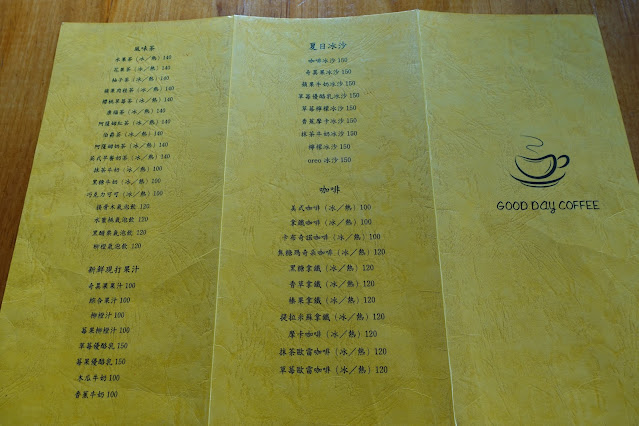 風味茶
水果茶（冰／熱）140
花果茶（冰／熱）140
柚子茶（冰／熱）140
蘋果肉桂茶（冰／熱）140
櫻桃草莓茶（冰／熱）140
康福茶（冰／熱）140
阿薩姆紅茶（冰／熱）140
伯爵茶（冰／熱）140
阿薩姆奶茶（冰／熱）140
英式早餐奶茶（冰／熱）140
抹茶牛奶（冰／熱）100
黑糖牛奶（冰／熱）100
巧克力可可（冰／熱）100
接骨木氣泡飲 120
水蜜桃氣泡飲 120
黑醋栗氣泡飲 120
柳橙氣泡飲 120
新鮮現打果汁
奇異果果汁 100
綜合果汁 100
柳橙汁 100
莓果柳橙汁 100
草莓優酪乳 150
莓果優酪乳 150
木瓜牛奶 100
香蕉牛奶 100
夏日冰沙
咖啡冰沙 150
奇異果冰沙 150
蘋果牛奶冰沙 150
草莓優酪乳冰沙 150
草莓檸檬冰沙 150
香蕉摩卡冰沙 150
抹茶牛奶冰沙 150
檸檬冰沙 150
oreo 冰沙 150
咖啡
美式咖啡（冰／熱）100
拿鐵咖啡（冰／熱）100
卡布奇諾咖啡（冰／熱）100
焦糖瑪奇朵咖啡（冰／熱）120
黑糖拿鐵（冰／熱）120
香草拿鐵（冰／熱）120
榛果拿鐵（冰／熱）120
提拉米蘇拿鐵（冰／熱）120
摩卡咖啡（冰／熱）120
抹茶歐蕾咖啡（冰／熱）120
草莓歐蕾咖啡（冰／熱）120
GOOD DAY COFFEE